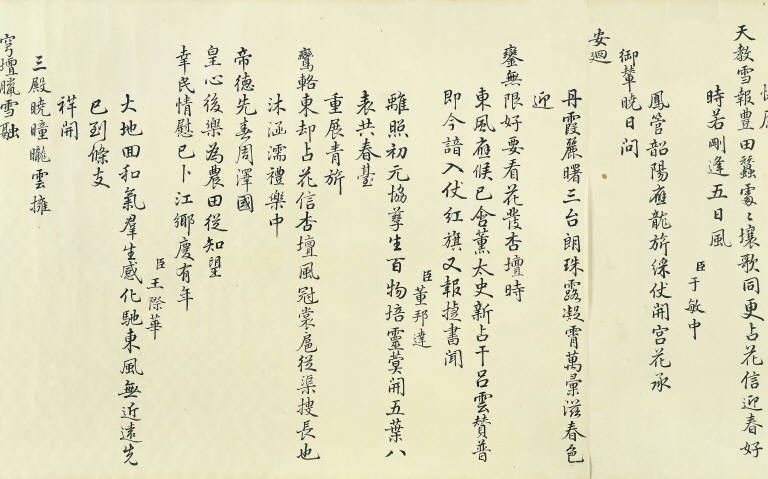 天教雪報豊田蠶處〻壤歌同更占花信迎春好
時若剛逢五日風
臣于敏中
鳳管韶陽應龍旂綵仗開宮花承
御輦曉日問
安迴
丹霞麗曙三台朗珠露凝霄萬彙滋春色
迎
鑾無限好要看花發杏壇時
東風應候已含薰太史新占干呂雲贊普
即今諳入仗紅旗又報捷書聞
臣董邦達
離照初元協孳生百物培靈蓂開五葉八
表共春臺
重展青旂
鸞輅東却占花信杏壇風冠裳扈從渠搜長也
沐涵濡禮樂中
帝德先春周澤國
皇心後樂為農田從知望
幸民情慰已卜江鄉慶有年
臣王際華
大地回和氣羣生感化馳東風無近遠先
已到條支
祥開
三殿曉曈曨雲擁
穹壇臘雪融